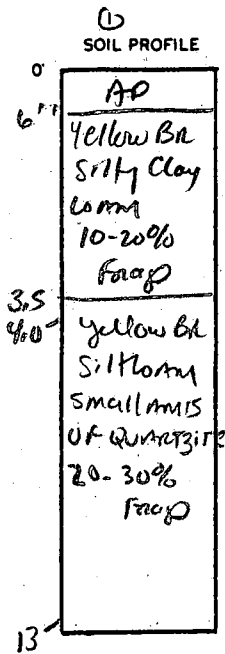 ①
SOIL PROFILE
0'
AP
6"
Yellow BR
Silty Clay
Loam
10-20%
Frag
3.5
4.0
Yellow BR
Silt Loam
small amts
of Quartzite
20-30%
Frag
13